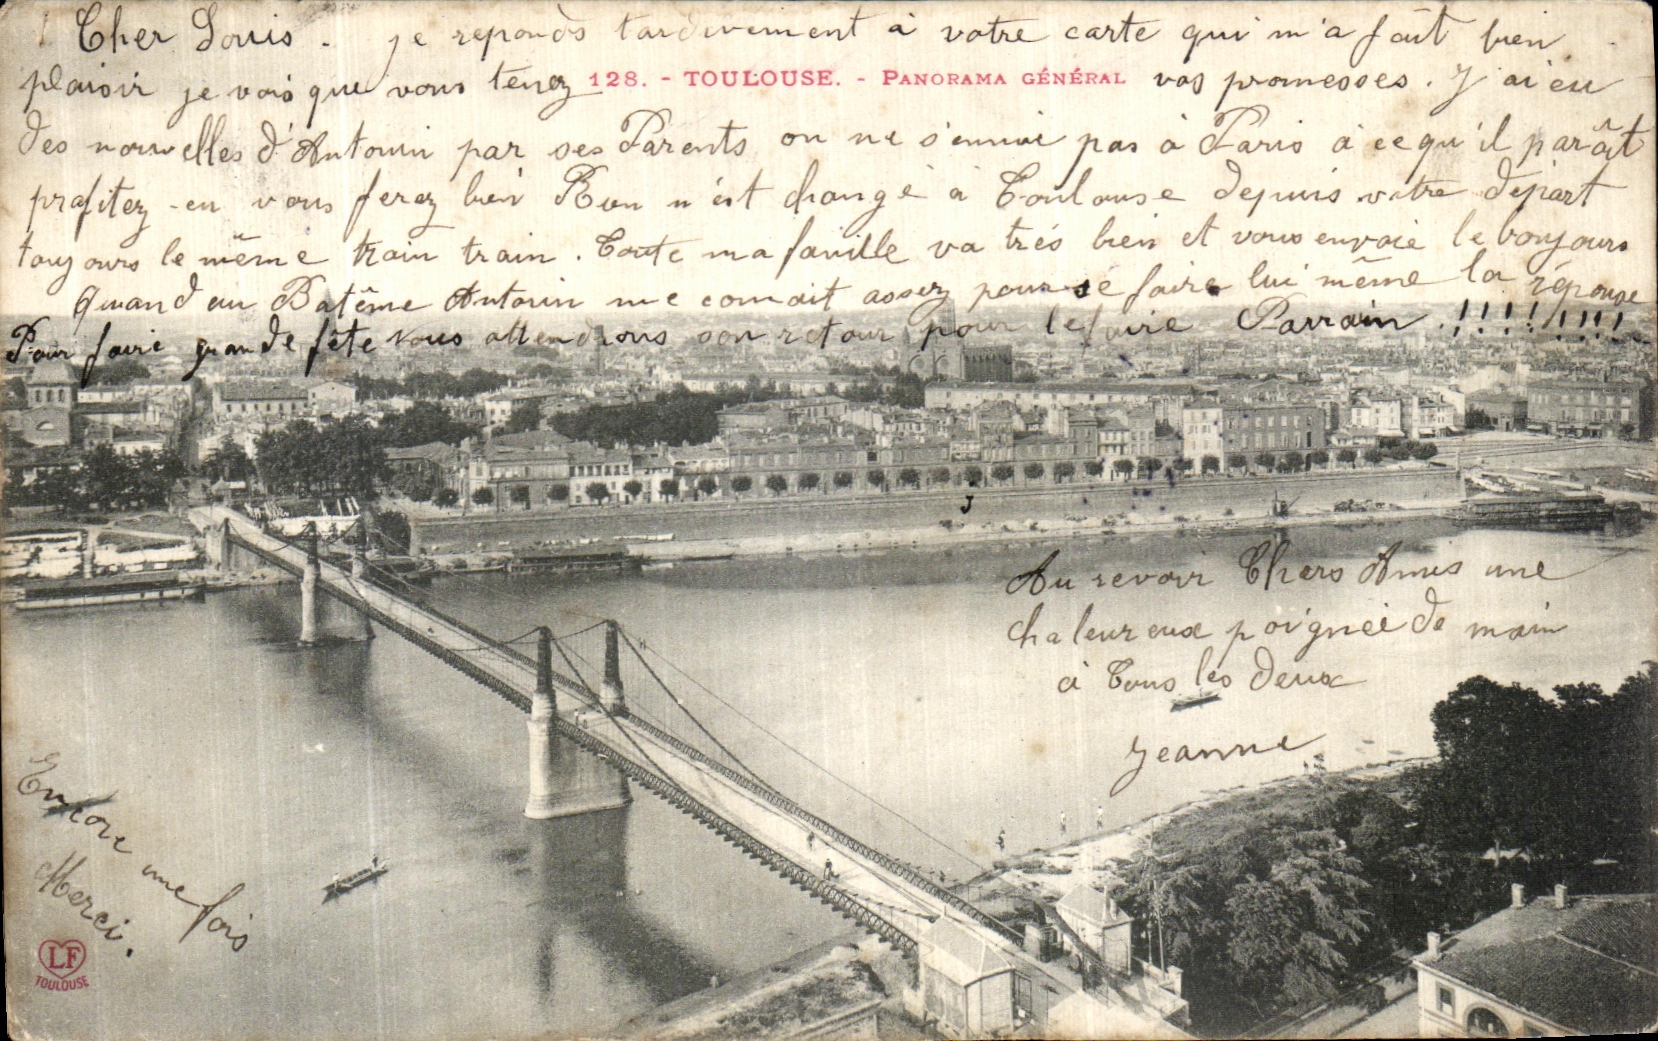 Cher Louis. je reponds tardivement à votre carte qui m'a fait bien
plaisir je vois que vous tenez vos promesses. J'ai eu
128. - TOULOUSE. - PANORAMA GÉNÉRAL
des nouvelles d'Antonin par ses Parents on ne s'ennuie pas à Paris à ce qu'il parâit
profitez-en vous ferez bien Rien n'est changé à Toulouse depuis votre départ
toujours le même train train. Toute ma famille va trés bien et vous envoie le bonjours
Quand au Batême Antonin me connait assez pour se faire lui même la réponse
Pour faire grande fête nous attendrons son retour pour le faire Parrain !!!!!!!!
Au revoir Chers Amis une
chaleureuse poignée de main
à Tous les deux
Jeanne
Encore une fois
Merci.
LF
TOULOUSE